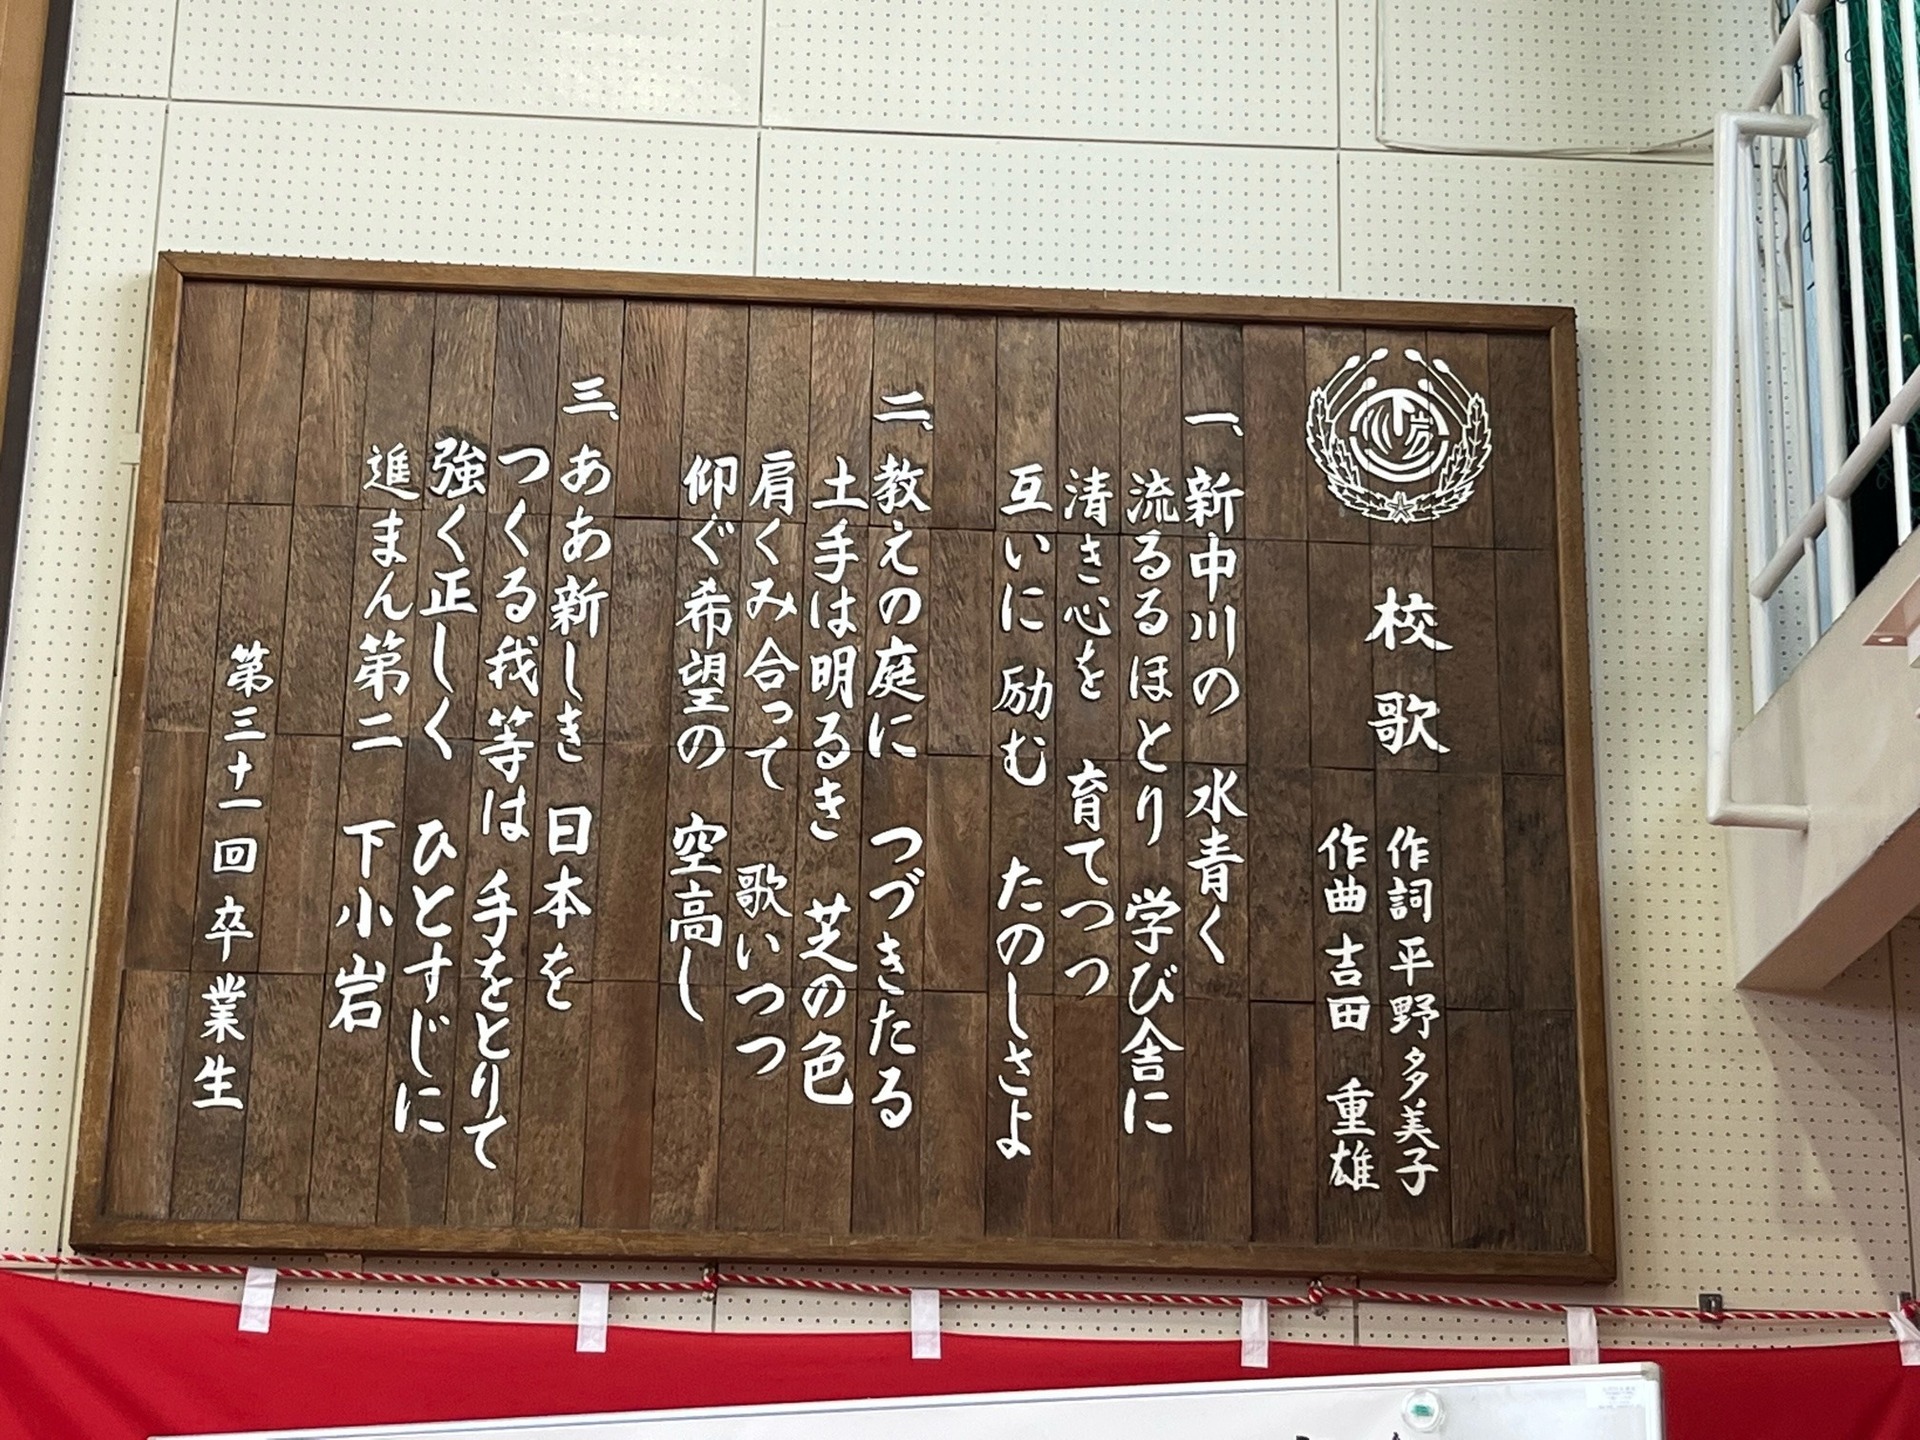 校歌
作詞 平野多美子
作曲 吉田 重雄
一、新中川の 水青く
流るるほとり 学び舎に
清き心を 育てつつ
互いに励む たのしさよ
二、教えの庭に つづきたる
土手は明るき 芝の色
肩くみ合って 歌いつつ
仰ぐ希望の 空高し
三、ああ新しき 日本を
つくる我等は 手をとりて
強く正しく ひとすじに
進まん第二 下小岩
第三十一回卒業生